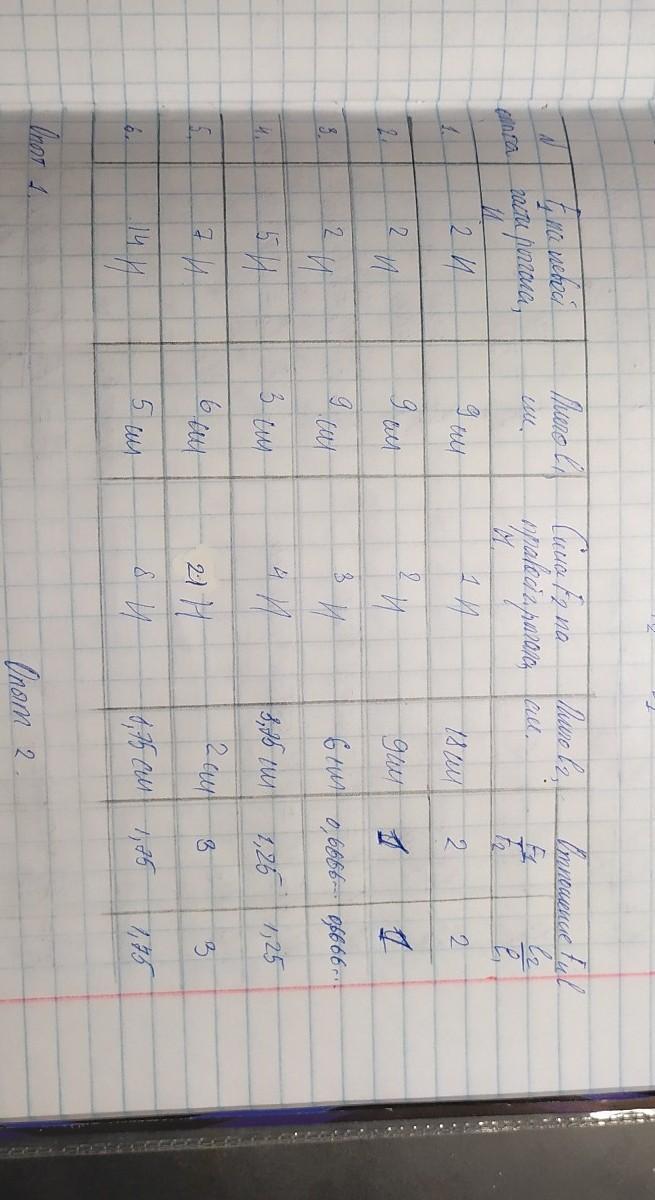 N опыта	F₁ на левой части рычага, Н	Плечо l₁, см.	Сила F₂ на правой рычага, Н.	Плечо l₂, см.	Отношение F и l
F₁/F₂	l₂/l₁
1.	2 Н	9 см	1 Н	18 см	2	2
2.	2 Н	9 см	2 Н	9 см	1	1
3.	2 Н	9 см	3 Н	6 см	0,6666...	0,6666...
4.	5 Н	3 см	4 Н	3,75 см	1,25	1,25
5.	7 Н	6 см	21 Н	2 см	3	3
6.	14 Н	5 см	8 Н	8,75 см	1,75	1,75
Опыт 1.	Опыт 2.